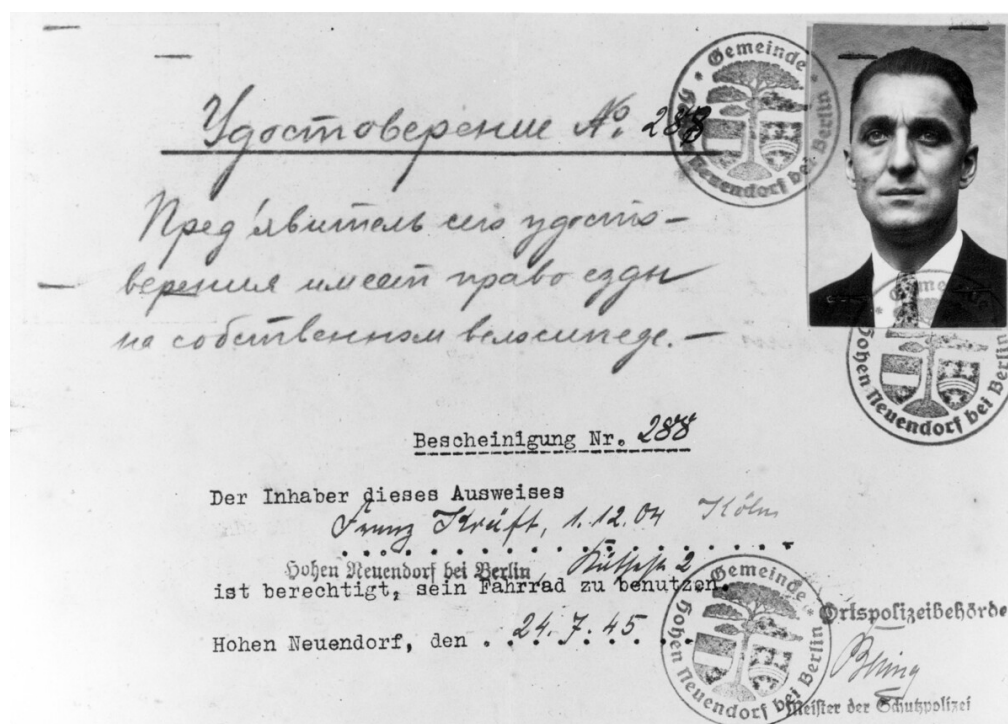 Удостоверение №. 288
Пред'явитель сего удосто-
верения имеет право езды
на собственном велосипеде. —
Gemeinde
Hohen Neuendorf bei Berlin
Gemeinde
Hohen Neuendorf bei Berlin
Bescheinigung Nr. 288
Der Inhaber dieses Ausweises
Franz Krüft, 1.12.04 Köln
Hohen Neuendorf bei Berlin, 2
ist berechtigt, sein Fahrrad zu benutzen.
Hohen Neuendorf, den 24.7.45
Gemeinde
Hohen Neuendorf bei Berlin
Ortspolizeibehörde
Meister der Schutzpolizei